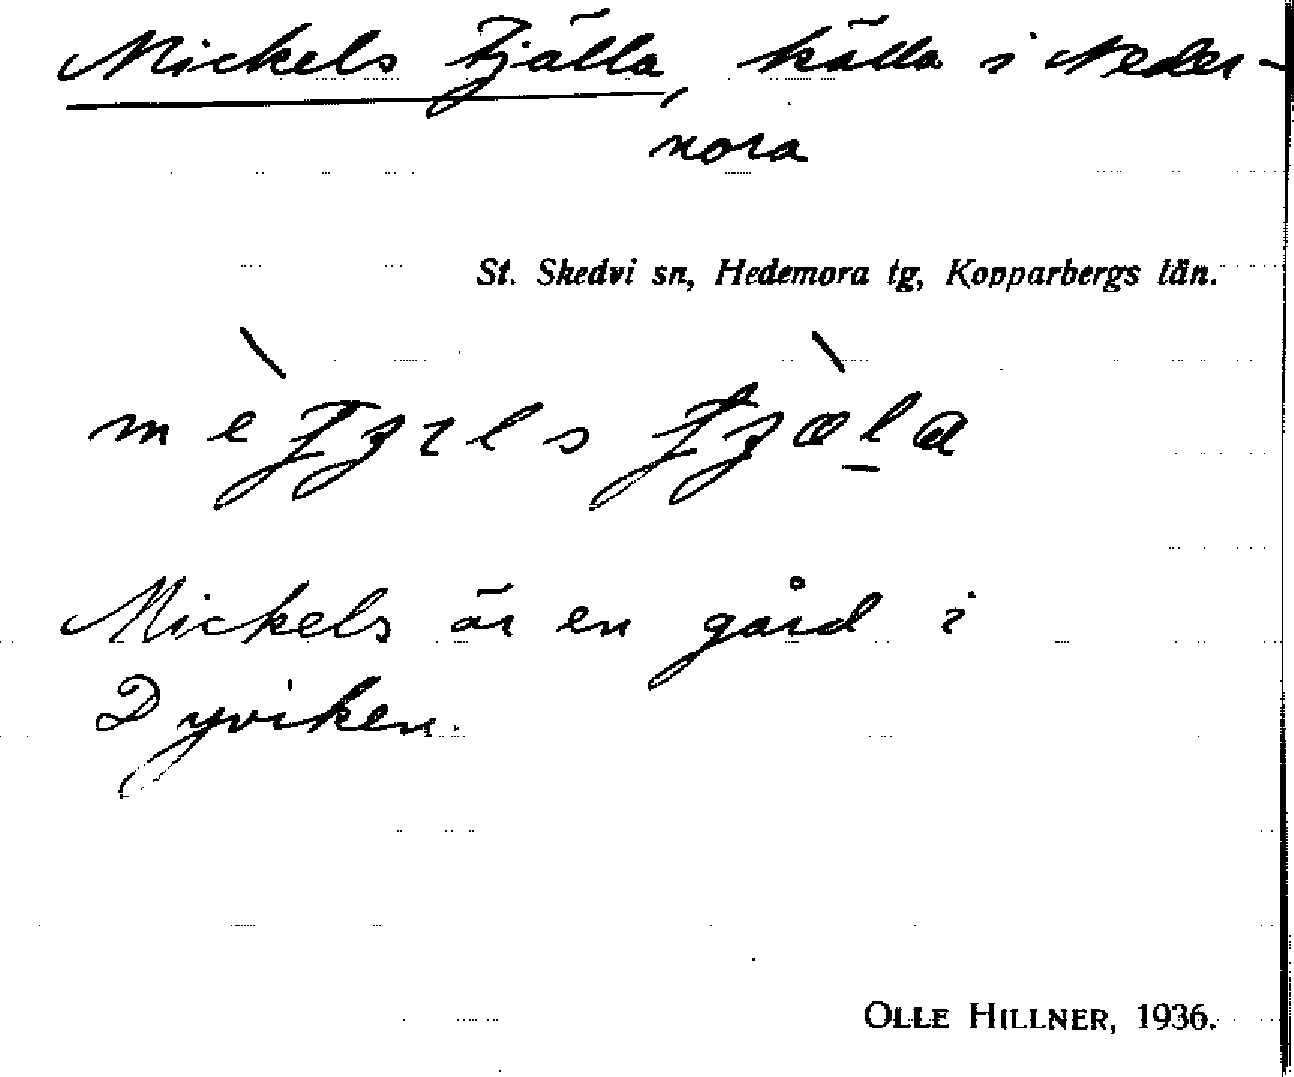 Mickels tjälla, källa i Neder-
nora
St. Skedvi sn, Hedemora tg, Kopparbergs län.
Mickels är en gård i
Dyviken.
OLLE HILLNER, 1936.